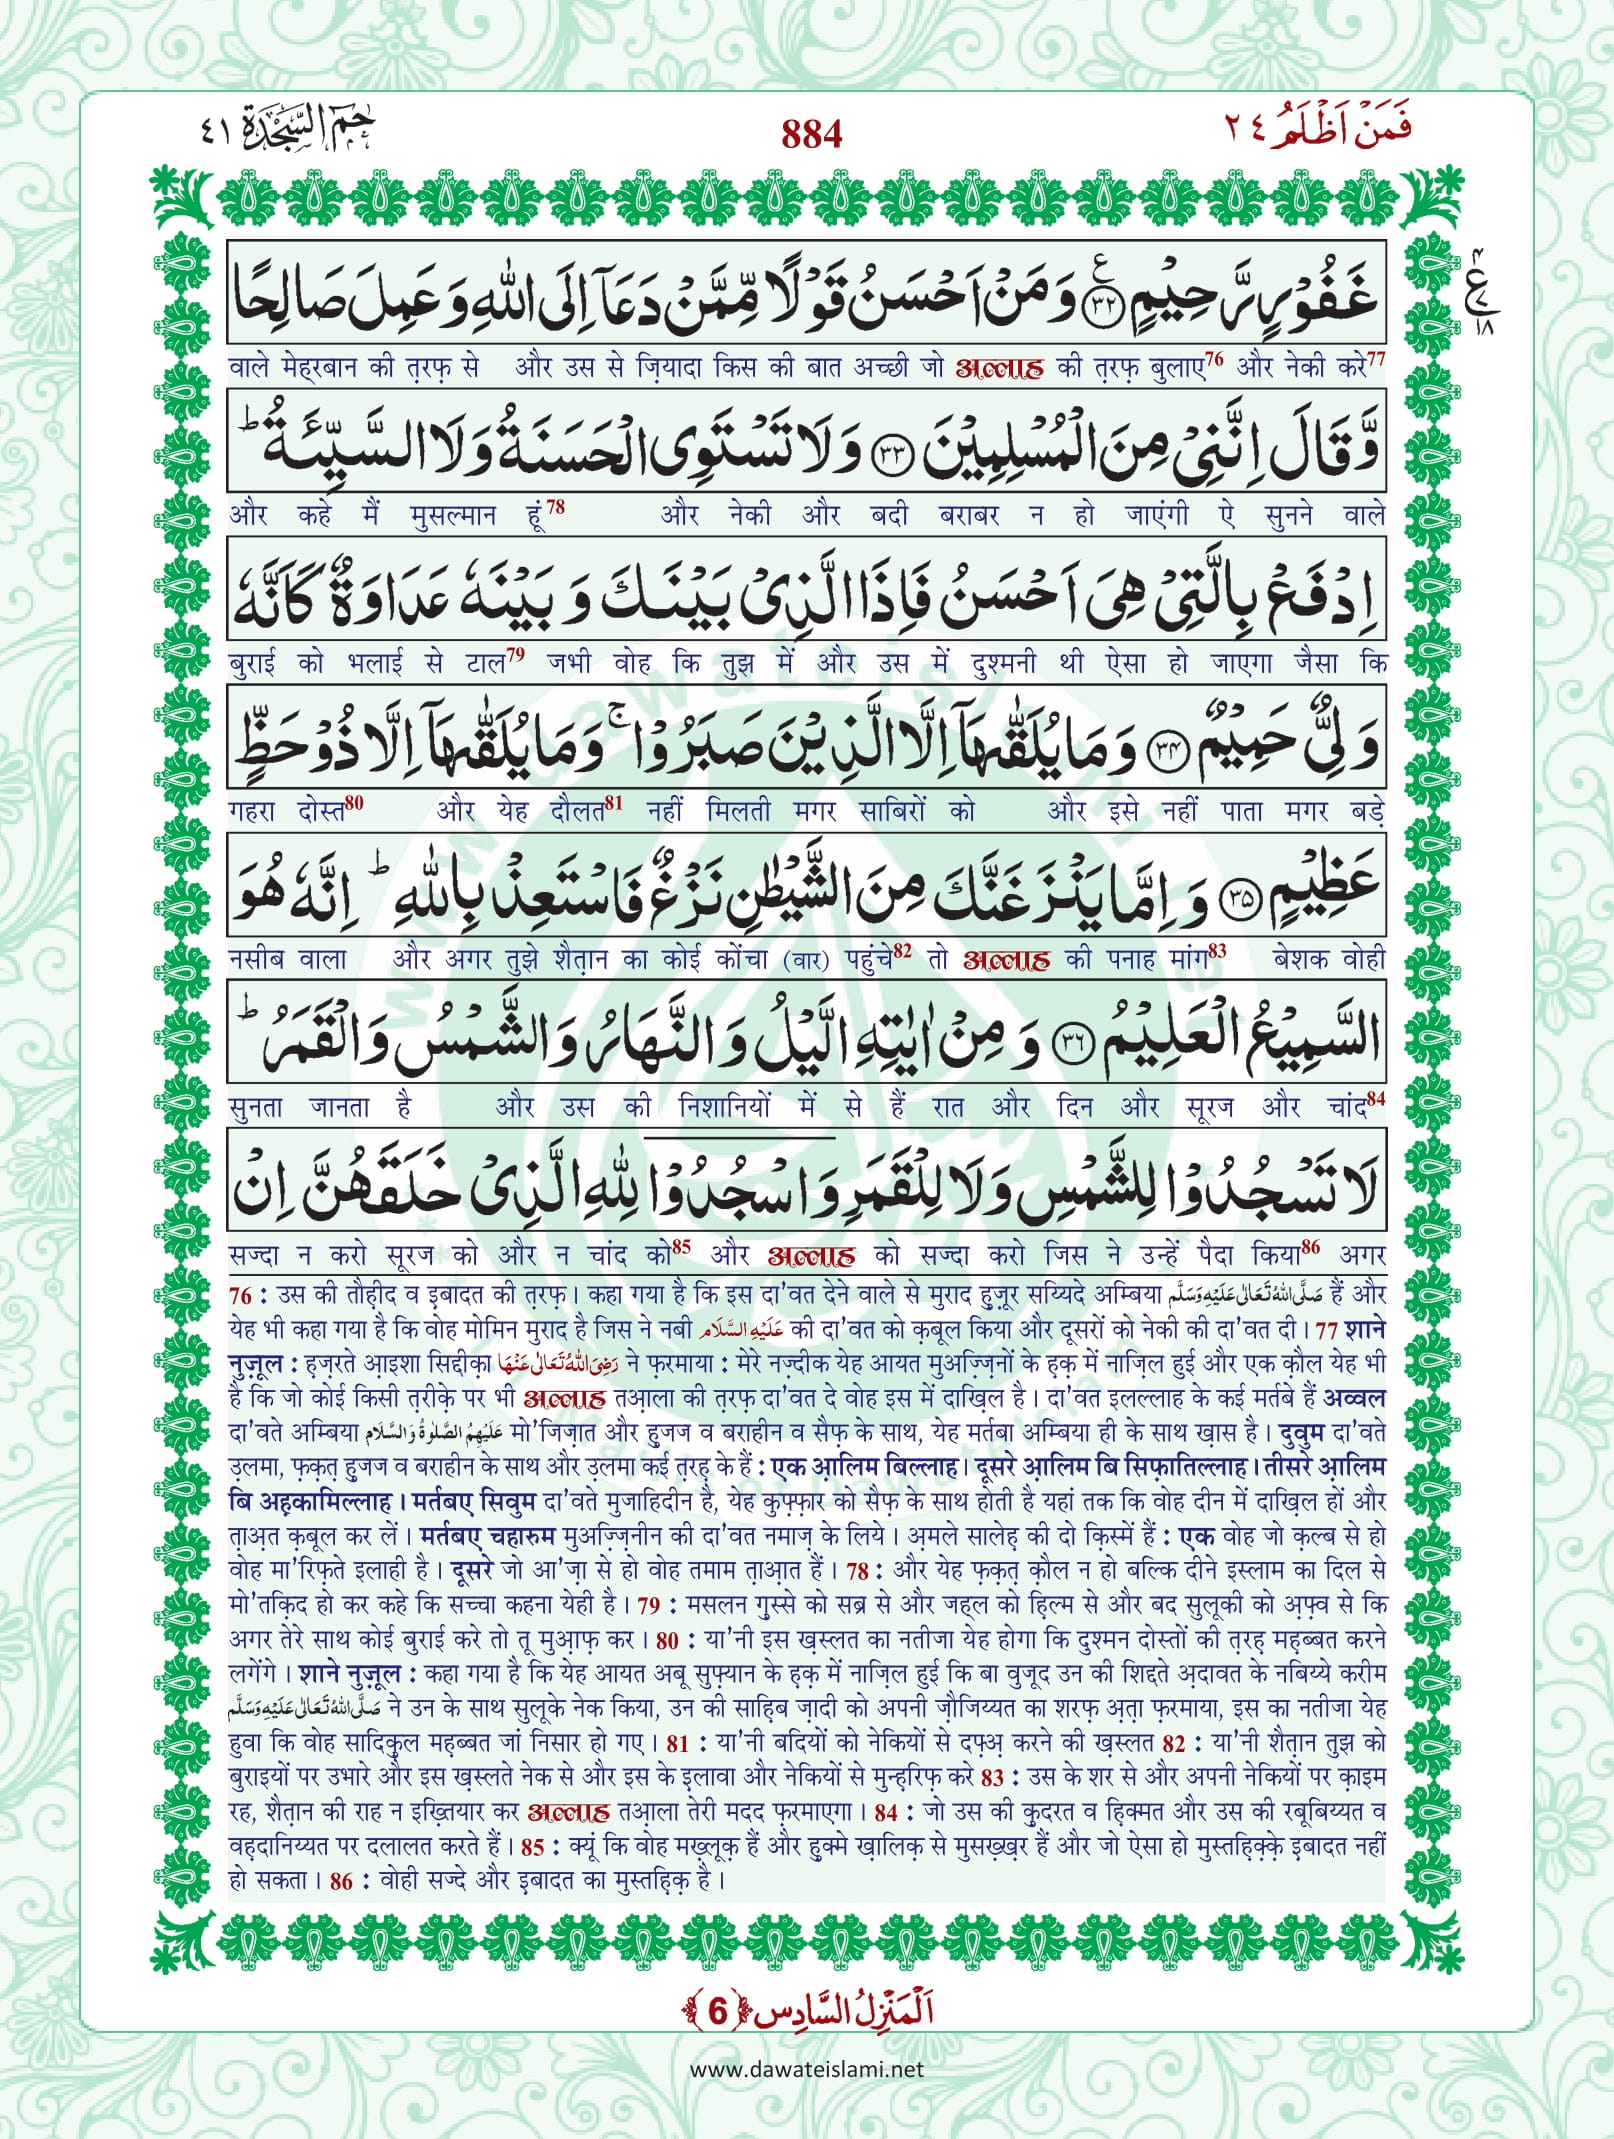 فَمَنْ اَظْلَمُ ٢٤
884
حٰمٓ السَّجْدَة ٤١
غَفُوْرٍ رَّحِیْمٍ ﴿۳۲﴾ وَ مَنْ اَحْسَنُ قَوْلًا مِّمَّنْ دَعَاۤ اِلَى اللّٰهِ وَ عَمِلَ صَالِحًا
ع ٤ ١٨
वाले मेह्‌रबान की त़रफ़ से और उस से ज़ियादा किस की बात अच्छी जो अल्लाह की त़रफ़ बुलाए76 और नेकी करे77
وَّ قَالَ اِنَّنِیْ مِنَ الْمُسْلِمِیْنَ ﴿۳۳﴾ وَ لَا تَسْتَوِی الْحَسَنَةُ وَ لَا السَّیِّئَةُ ؕ
और कहे मैं मुसल्मान हूं78 और नेकी और बदी बराबर न हो जाएंगी ऐ सुनने वाले
اِدْفَعْ بِالَّتِیْ هِیَ اَحْسَنُ فَاِذَا الَّذِیْ بَیْنَكَ وَ بَیْنَهٗ عَدَاوَةٌ كَاَنَّهٗ
बुराई को भलाई से टाल79 जभी वोह कि तुझ में और उस में दुश्मनी थी ऐसा हो जाएगा जैसा कि
وَلِیٌّ حَمِیْمٌ ﴿۳۴﴾ وَ مَا یُلَقّٰىهَاۤ اِلَّا الَّذِیْنَ صَبَرُوْا ۚ وَ مَا یُلَقّٰىهَاۤ اِلَّا ذُوْ حَظٍّ
गहरा दोस्त80 और येह दौलत81 नहीं मिलती मगर साबिरों को और इसे नहीं पाता मगर बड़े
عَظِیْمٍ ﴿۳۵﴾ وَ اِمَّا یَنْزَغَنَّكَ مِنَ الشَّیْطٰنِ نَزْغٌ فَاسْتَعِذْ بِاللّٰهِ ؕ اِنَّهٗ هُوَ
नसीब वाला और अगर तुझे शैत़ान का कोई कोंचा (वार) पहुंचे82 तो अल्लाह की पनाह मांग83 बेशक वोही
السَّمِیْعُ الْعَلِیْمُ ﴿۳۶﴾ وَ مِنْ اٰیٰتِهِ الَّیْلُ وَ النَّهَارُ وَ الشَّمْسُ وَ الْقَمَرُ ؕ
सुनता जानता है और उस की निशानियों में से हैं रात और दिन और सूरज और चांद84
لَا تَسْجُدُوْا لِلشَّمْسِ وَ لَا لِلْقَمَرِ وَ اسْجُدُوْا لِلّٰهِ الَّذِیْ خَلَقَهُنَّ اِنْ
सज्दा न करो सूरज को और न चांद को85 और अल्लाह को सज्दा करो जिस ने उन्हें पैदा किया86 अगर
76 : उस की तौह़ीद व इ़बादत की त़रफ़। कहा गया है कि इस दा'वत देने वाले से मुराद हुज़ूर सय्यिदे अम्बिया صَلَّى اللهُ تَعَالٰى عَلَيْهِ وَسَلَّم हैं और
येह भी कहा गया है कि वोह मोमिन मुराद है जिस ने नबी عَلَيْهِ السَّلَام की दा'वत को क़बूल किया और दूसरों को नेकी की दा'वत दी। 77 शाने
नुज़ूल : ह़ज़रते आ़इशा सिद्दीक़ा رَضِىَ اللهُ تَعَالٰى عَنْهَا ने फ़रमाया : मेरे नज़्दीक येह आयत मुअज़्ज़िनों के ह़क़ में नाज़िल हुई और एक क़ौल येह भी
है कि जो कोई किसी त़रीक़े पर भी अल्लाह तआ़ला की त़रफ़ दा'वत दे वोह इस में दाख़िल है। दा'वत इलल्लाह के कई मर्तबे हैं अव्वल
दा'वते अम्बिया عَلَيْهِمُ الصَّلٰوةُ وَالسَّلَام मो'जिज़ात और हुजज व बराहीन व सैफ़ के साथ, येह मर्तबा अम्बिया ही के साथ ख़ास है। दुवुम दा'वते
उ़लमा, फ़क़त़ हुजज व बराहीन के साथ और उ़लमा कई त़रह़ के हैं : एक आ़लिम बिल्लाह। दूसरे आ़लिम बि सिफ़ातिल्लाह। तीसरे आ़लिम
बि अह़कामिल्लाह। मर्तबए सिवुम दा'वते मुजाहिदीन है, येह कुफ़्फ़ार को सैफ़ के साथ होती है यहां तक कि वोह दीन में दाख़िल हों और
त़ाअ़त क़बूल कर लें। मर्तबए चहारुम मुअज़्ज़िनीन की दा'वत नमाज़ के लिये। अ़मले सालेह़ की दो क़िस्में हैं : एक वोह जो क़ल्ब से हो
वोह मा'रिफ़ते इलाही है। दूसरे जो आ'ज़ा से हो वोह तमाम त़ाआ़त हैं। 78 : और येह फ़क़त़ क़ौल न हो बल्कि दीने इस्लाम का दिल से
मो'तक़िद हो कर कहे कि सच्चा कहना येही है। 79 : मसलन ग़ुस्से को सब्र से और जह्ल को ह़िल्म से और बद सुलूकी को अ़फ़्व से कि
अगर तेरे साथ कोई बुराई करे तो तू मुआ़फ़ कर। 80 : या'नी इस ख़स्लत का नतीजा येह होगा कि दुश्मन दोस्तों की त़रह़ मह़ब्बत करने
लगेंगे। शाने नुज़ूल : कहा गया है कि येह आयत अबू सुफ़्यान के ह़क़ में नाज़िल हुई कि बा वुजूद उन की शिद्दते अ़दावत के नबिय्ये करीम
صَلَّى اللهُ تَعَالٰى عَلَيْهِ وَسَلَّم ने उन के साथ सुलूके नेक किया, उन की साह़िब ज़ादी को अपनी ज़ौजिय्यत का शरफ़ अ़त़ा फ़रमाया, इस का नतीजा येह
हुवा कि वोह सादिक़ुल मह़ब्बत जां निसार हो गए। 81 : या'नी बदियों को नेकियों से दफ़्अ़ करने की ख़स्लत 82 : या'नी शैत़ान तुझ को
बुराइयों पर उभारे और इस ख़स्लते नेक से और इस के इ़लावा और नेकियों से मुन्ह़रिफ़ करे 83 : उस के शर से और अपनी नेकियों पर क़ाइम
रह, शैत़ान की राह न इख़्तियार कर अल्लाह तआ़ला तेरी मदद फ़रमाएगा। 84 : जो उस की क़ुदरत व ह़िक्मत और उस की रबूबिय्यत व
वह़दानिय्यत पर दलालत करते हैं। 85 : क्यूं कि वोह मख़्लूक़ हैं और हुक्मे ख़ालिक़ से मुसख़्ख़र हैं और जो ऐसा हो मुस्तह़िक़्क़े इ़बादत नहीं
हो सकता। 86 : वोही सज्दे और इ़बादत का मुस्तह़िक़ है।
اَلْمَنْزِلُ السَّادِس ﴿6﴾
www.dawateislami.net